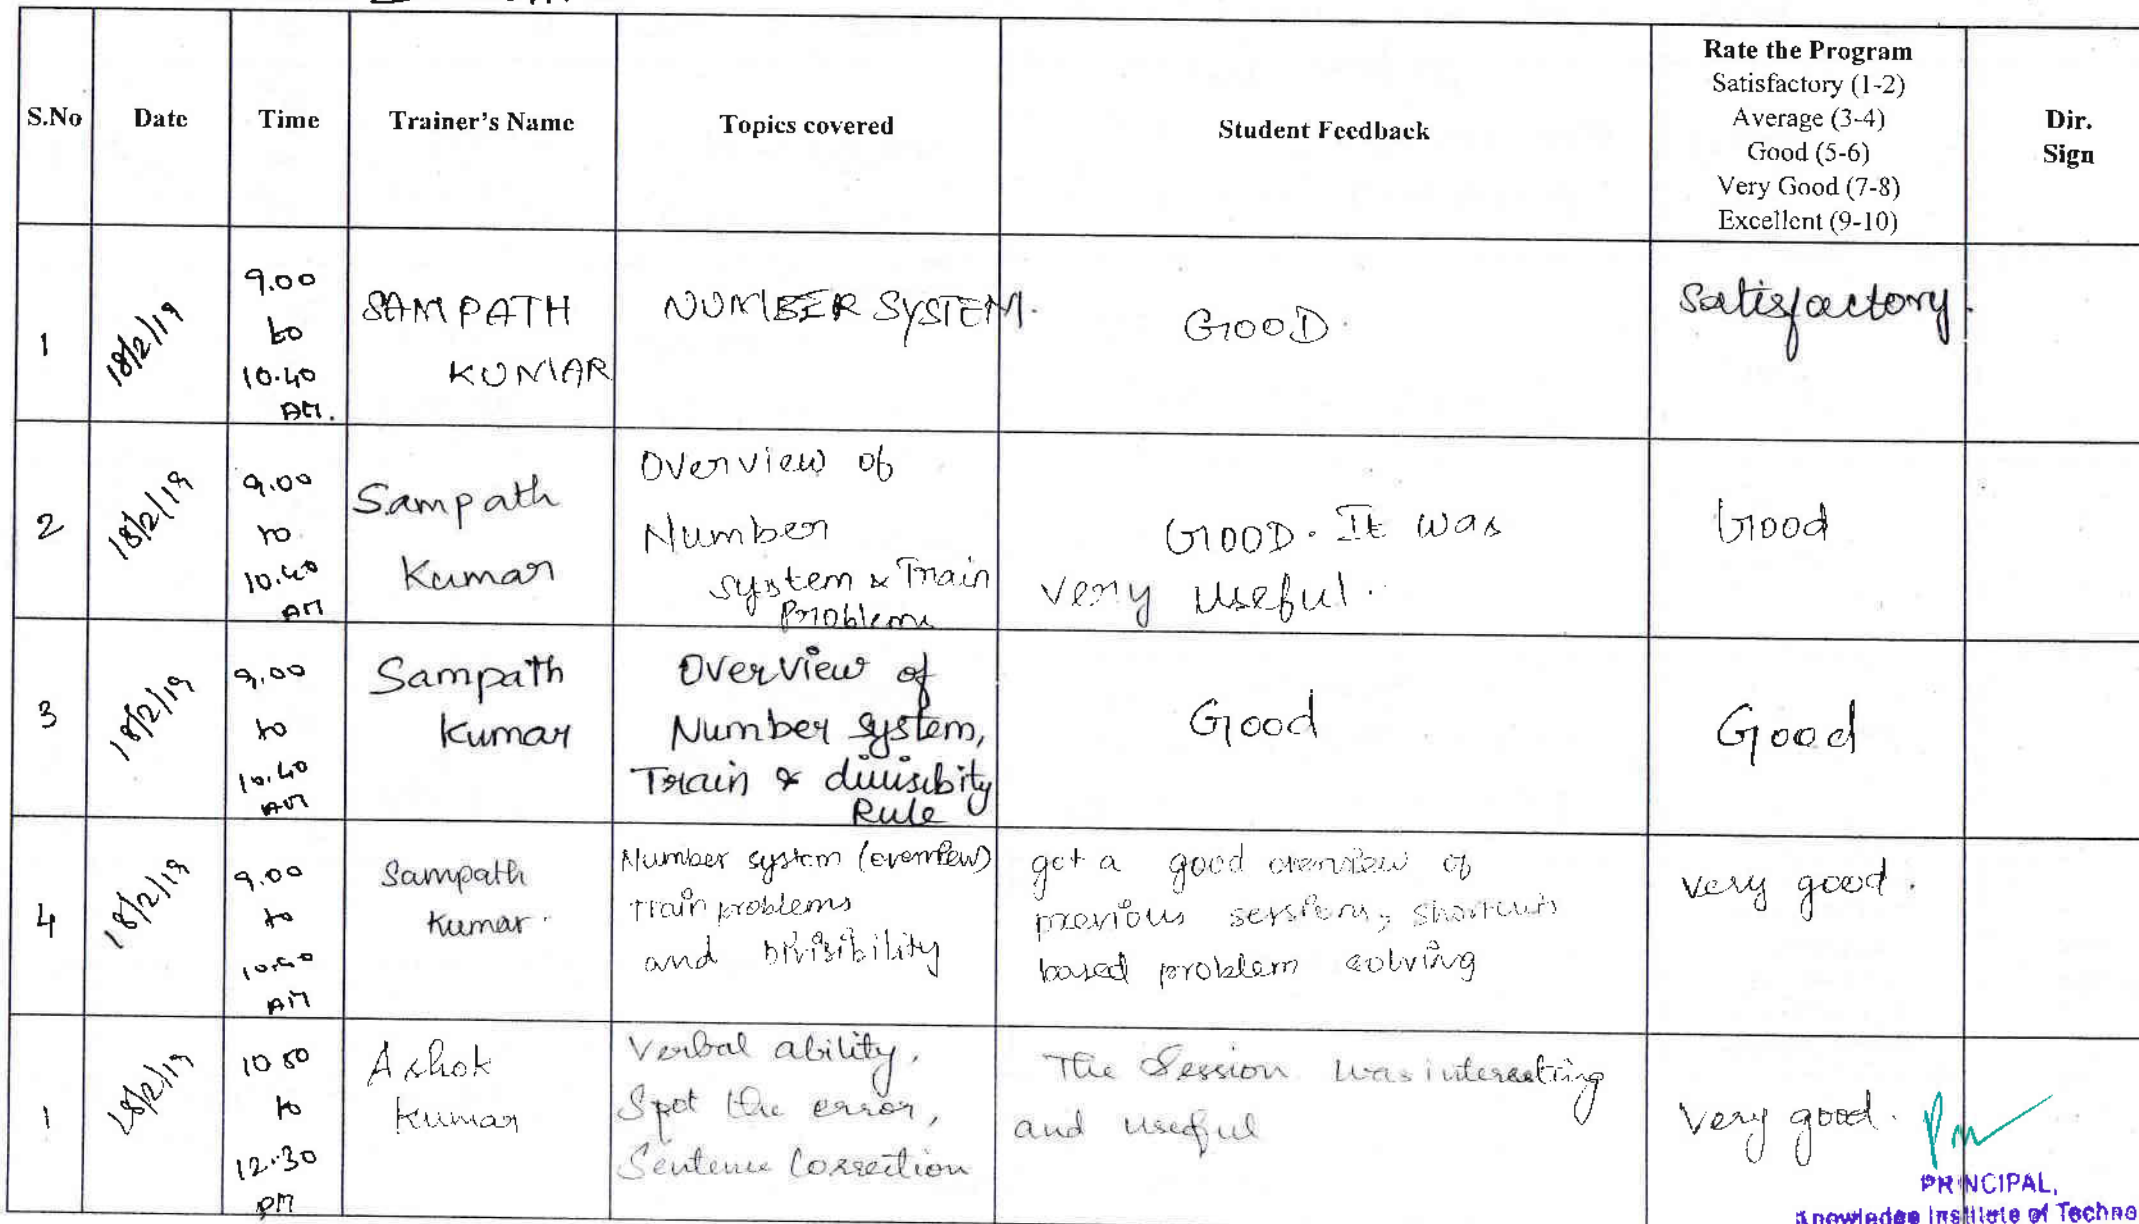 S.No
Date
Time
Trainer's Name
Topics covered
Student Feedback
Rate the Program
Satisfactory (1-2)
Average (3-4)
Good (5-6)
Very Good (7-8)
Excellent (9-10)
Dir.
Sign
1
18/2/19
9.00
to
10.40
AM.
SAMPATH
KUMAR
NUMBER SYSTEM.
GOOD.
Satisfactory.
2
18/2/19
9.00
to
10.40
AM
Sampath
Kumar
Overview of
Number
system & Train
Problems
GOOD. It was
very useful.
Good
3
18/2/19
9.00
to
10.40
AM
Sampath
Kumar
Overview of
Number system,
Train & divisibity
Rule
Good
Good
4
18/2/19
9.00
to
10.40
AM
Sampath
Kumar.
Number system (overview)
train problems
and Divisibility
got a good overview of
previous sessions, shortcuts
based problem solving
very good.
1
18/2/19
10 50
to
12.30
PM
Ashok
Kumar
Verbal ability,
Spot the error,
Sentence Correction
The Session was interesting
and useful
Very good.
PRINCIPAL,
Knowledge Institute of Techno